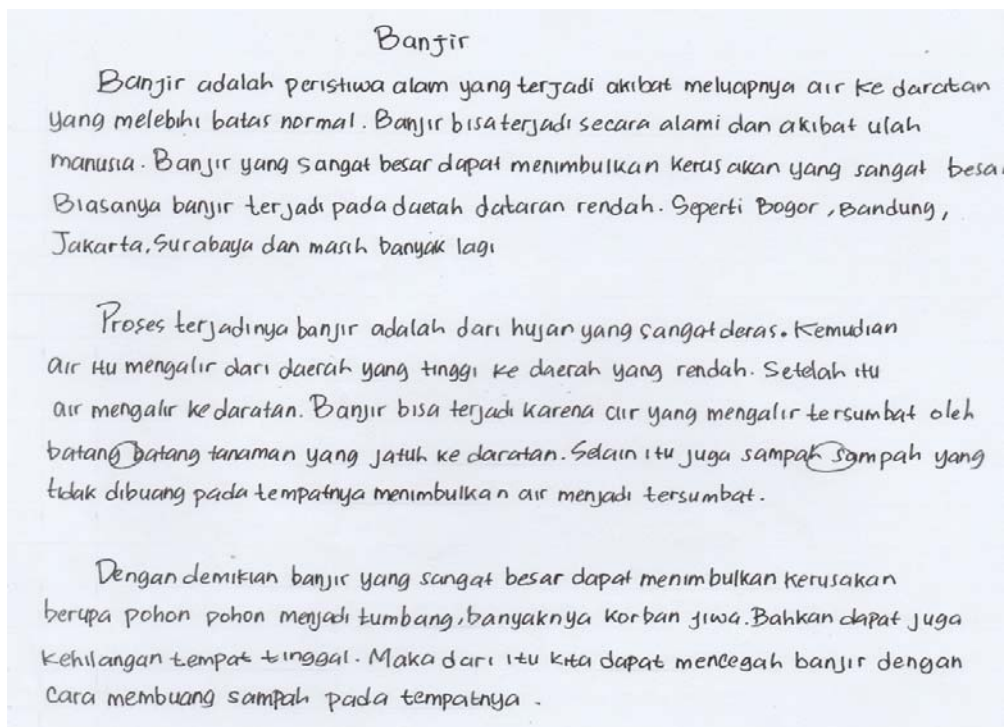 Banjir
Banjir adalah peristiwa alam yang terjadi akibat meluapnya air ke daratan
yang melebihi batas normal. Banjir bisa terjadi secara alami dan akibat ulah
manusia. Banjir yang sangat besar dapat menimbulkan kerusakan yang sangat besa
Biasanya banjir terjadi pada daerah dataran rendah. Seperti Bogor, Bandung,
Jakarta, Surabaya dan masih banyak lagi
Proses terjadinya banjir adalah dari hujan yang sangat deras. Kemudian
air itu mengalir dari daerah yang tinggi ke daerah yang rendah. Setelah itu
air mengalir ke daratan. Banjir bisa terjadi karena air yang mengalir tersumbat oleh
batang batang tanaman yang jatuh ke daratan. Selain itu juga sampah sampah yang
tidak dibuang pada tempatnya menimbulkan air menjadi tersumbat.
Dengan demikian banjir yang sangat besar dapat menimbulkan kerusakan
berupa pohon pohon menjadi tumbang, banyaknya korban jiwa. Bahkan dapat juga
kehilangan tempat tinggal. Maka dari itu kita dapat mencegah banjir dengan
cara membuang sampah pada tempatnya.